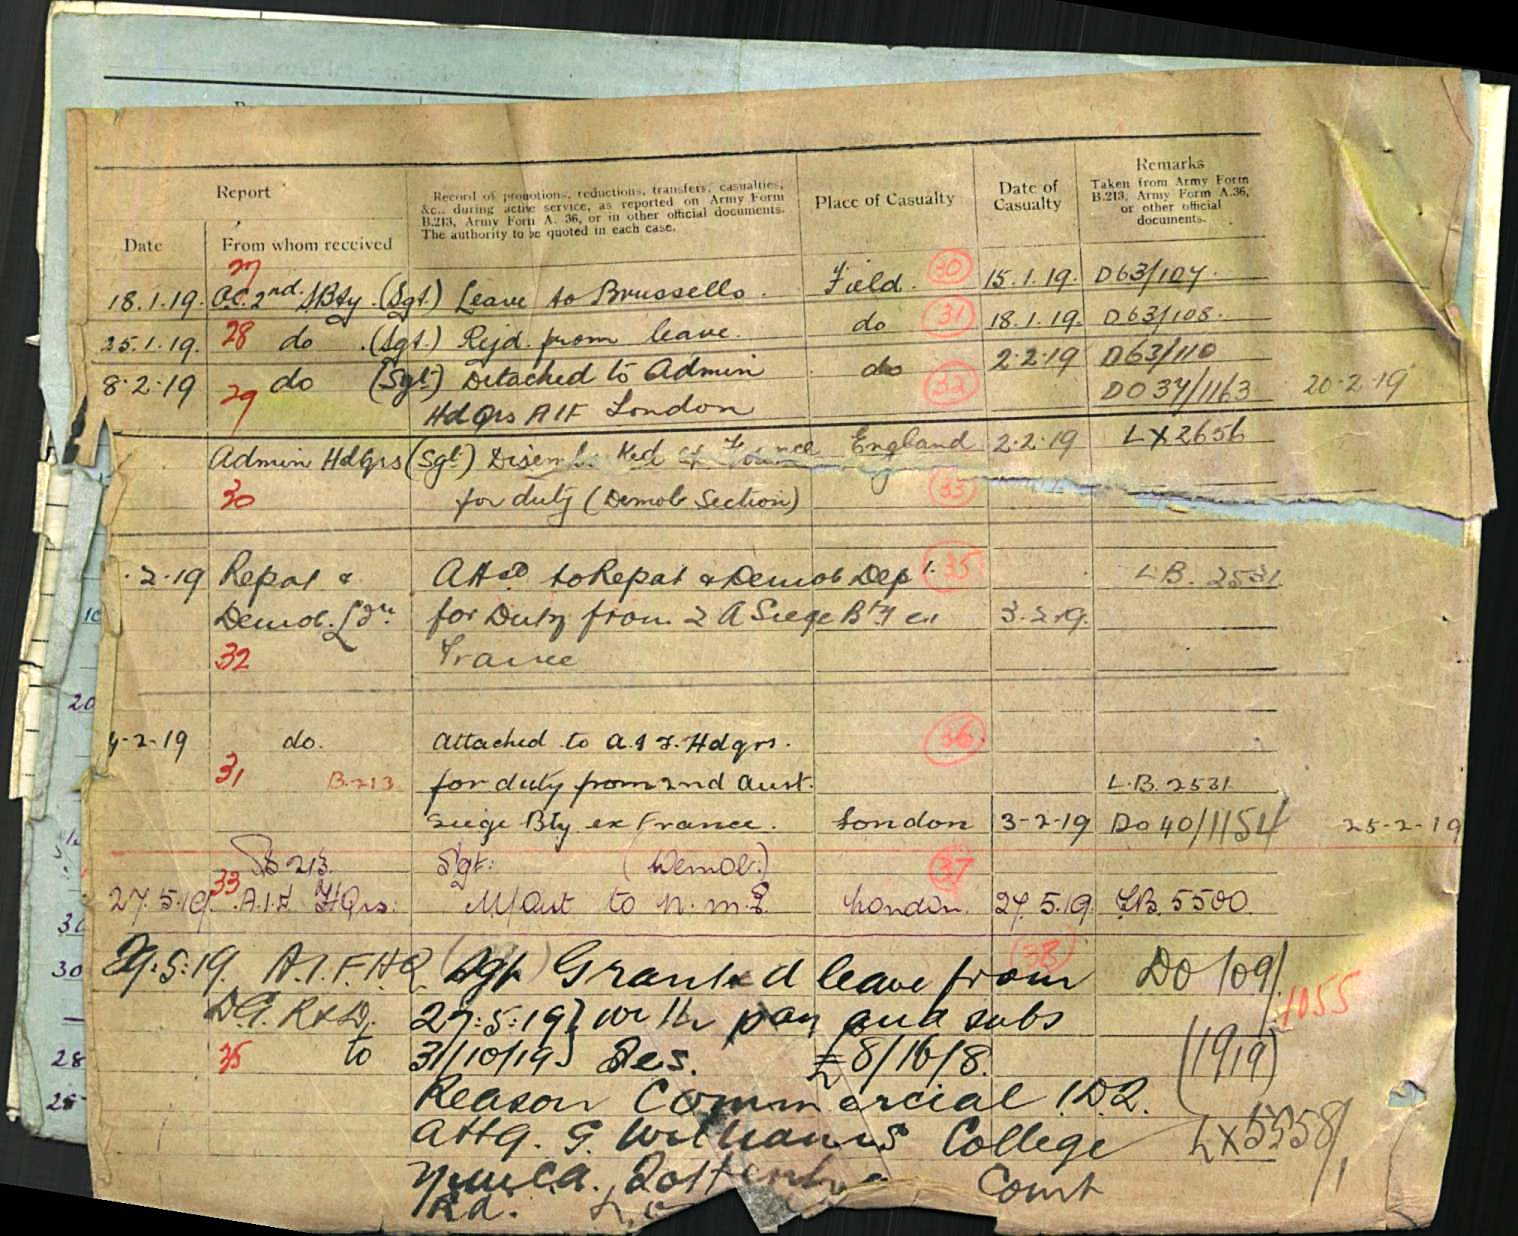 Report
Record of promotions, reductions, transfers, casualties,
&c., during active service, as reported on Army Form
B.213, Army Form A. 36, or in other official documents.
The authority to be quoted in each case.
Place of Casualty
Date of
Casualty
Remarks
Taken from Army Form
B.213, Army Form A.36,
or other official
documents.
Date
From whom received
27
18.1.19. OC. 2nd SBty. (Sgt.) Leave to Brussells. Field. 30 15.1.19. D63/107.
25.1.19. 28 do (Sgt.) Rejd. from leave. do 31 18.1.19. D63/108.
8.2.19 29 do (Sgt) Detached to Admin do 32 2.2.19 D63/110
Hdqrs AIF London DO 37/1163 20.2.19
Admin Hdqrs (Sgt) England 2.2.19 LX2656
30 for duty (Demob Section) 33
.2.19 Repat & Attd to Repat & Demob Dept. 35 L.B. 2531
Demob. Ldn for Duty from 2 A Siege Bty ex 3.2.19.
32 France
4-2-19 do. attached to A.I.F. Hdqrs. 36
31 B.213 for duty from 2nd Aust. L.B. 2531
Siege Bty ex France. London 3-2-19 Do 40/1154 25-2-19
B213. Sgt: (Demob.) 37
27.5.19. 33 A.I.F. HQrs. M/Out to N.M.E. London. 27.5.19. LB. 5500.
29.5.19. A.I.F.HQ Sgt Granted leave from 38 DO 109/
D.G. R&D. 27.5.19} with pay and subs 1055
35 to 31/10/19} Ses. £8/16/8. (1919)
Reason Commercial I.D.2.
attg. G. Williams College LX5558/1
YMCA. Tottenham Court
Rd.
20
30
30
28